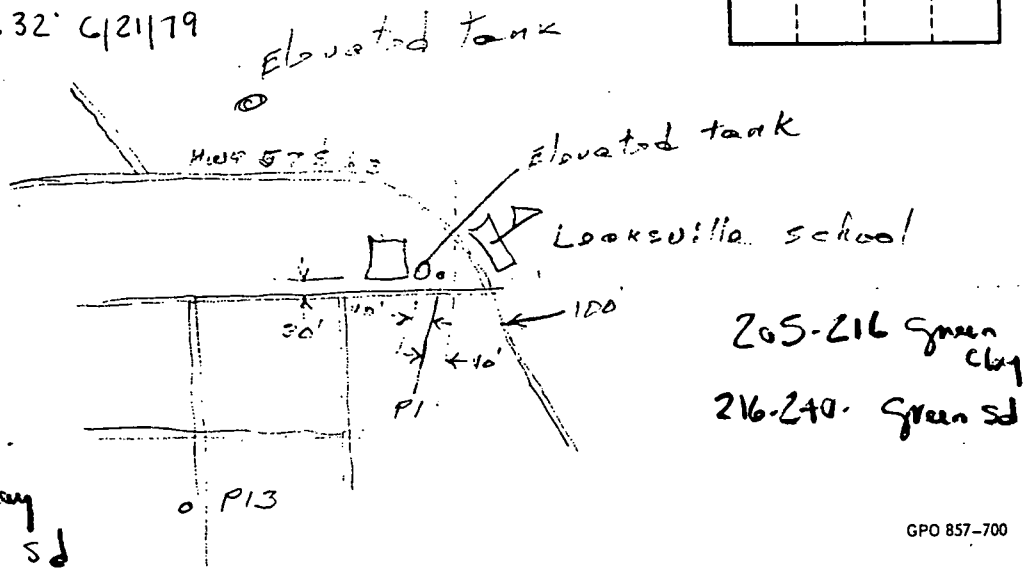 .32' 6/21/79
Elevated tank
Elevated tank
Leaksville school
100'
30'
10'
10'
P1
205-216 Green
Clay
216-240. Green Sd
P13
sd
GPO 857-700